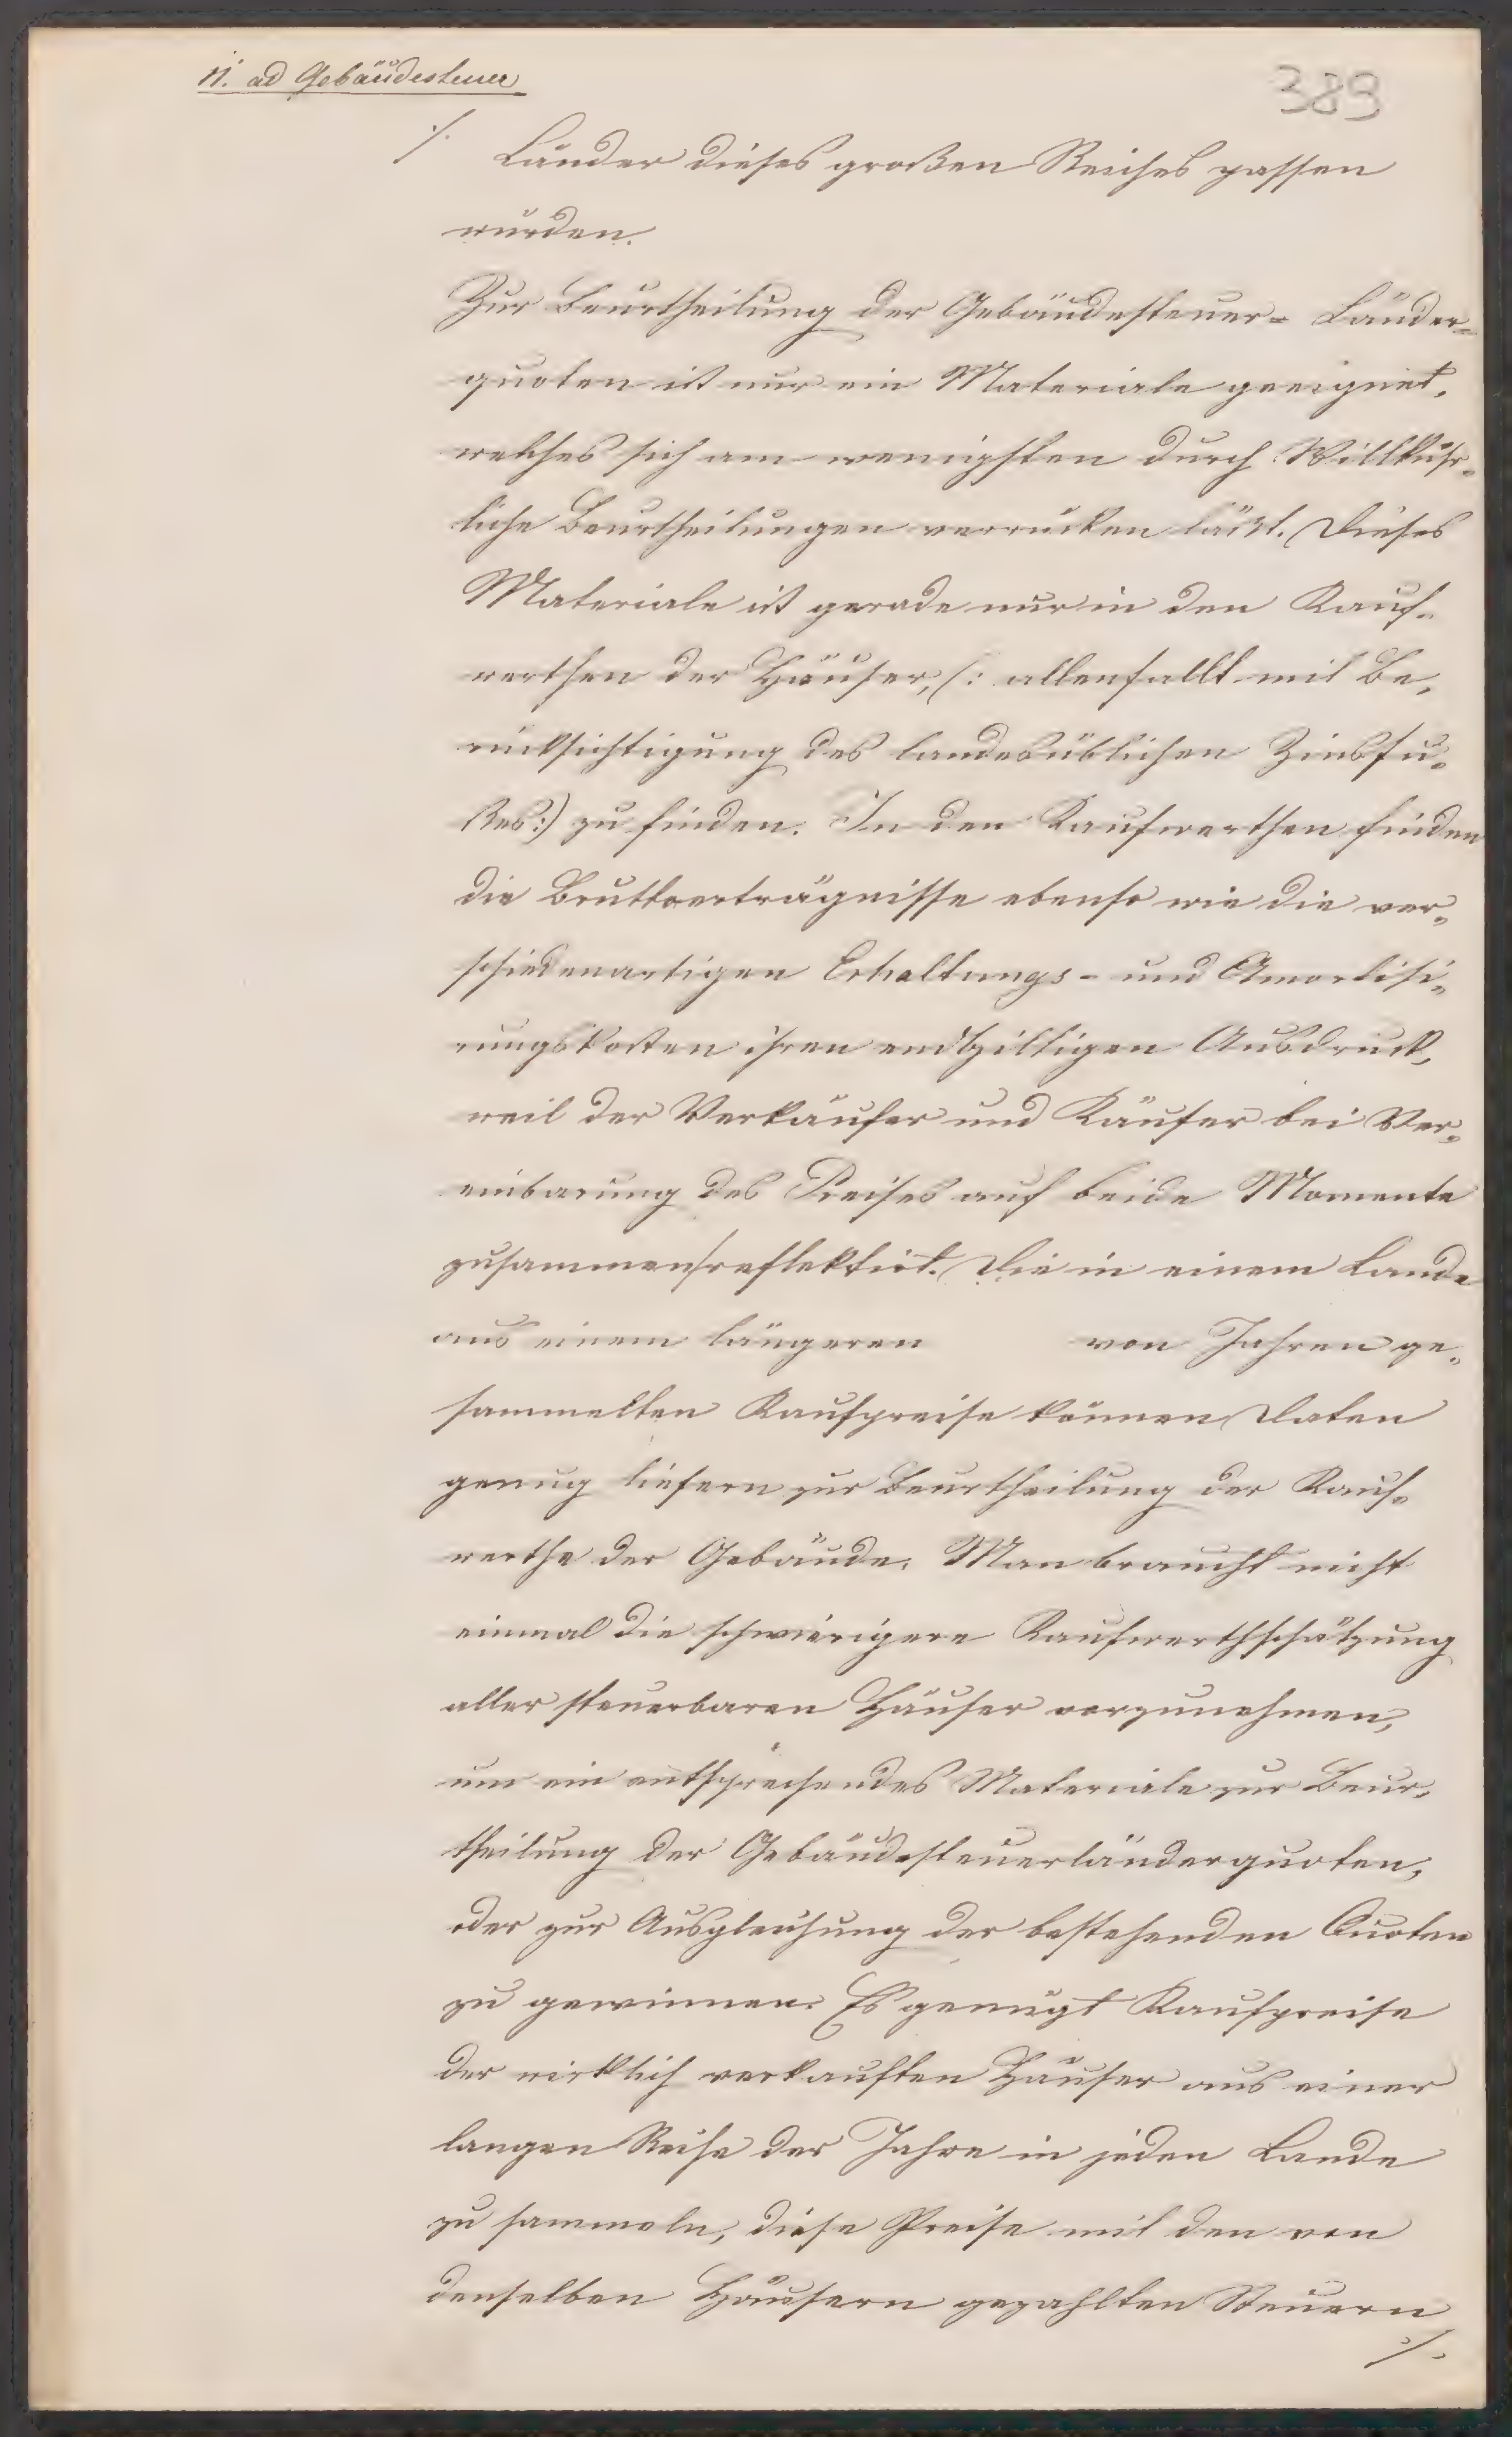 11. ad Gebäudesteuer
389
·/. Länder dieses großen Reiches passen
würden.
Zur Beurtheilung der Gebäudesteuer- Länder-
quoten ist nur ein Materiale geeignet,
welches sich am wenigsten durch Willkühr-
liche Beurtheilungen verrücken läßt. Dieses
Materiale ist gerade nur in den Kauf-
werthen der Häuser, (: allenfallt mit Be-
rücksichtigung des landesüblichen Zinsfu-
ßes:) zu finden. In den Kaufwerthen finden
die Bruttoerträgnisse ebenso wie die ver-
schiedenartigen Erhaltungs- und Amortisi-
rungskosten ihren endgiltigen Ausdruck,
weil der Verkäufer und Käufer bei Ver-
einbarung des Preises auf beide Momente
zusammen reflektirt. Die in einem Lande
aus einem längeren von Jahren ge-
sammelten Kaufpreise können Daten
genug liefern zur Beurtheilung der Kauf-
werthe der Gebäude. Man braucht nicht
einmal die schwierigere Kaufwerthschätzung
aller steuerbaren Häuser vorzunehmen,
um ein entsprechendes Materiale zur Beur-
theilung der Gebäudesteuerländerquoten,
oder zur Ausgleichung der bestehenden Quoten
zu gewinnen. Es genügt Kaufpreise
der wirklich verkauften Häuser aus einer
langen Reihe der Jahre in jeden Lande
zu sammeln, diese Preise mit den von
denselben Häusern gezahlten Steuern
·/.